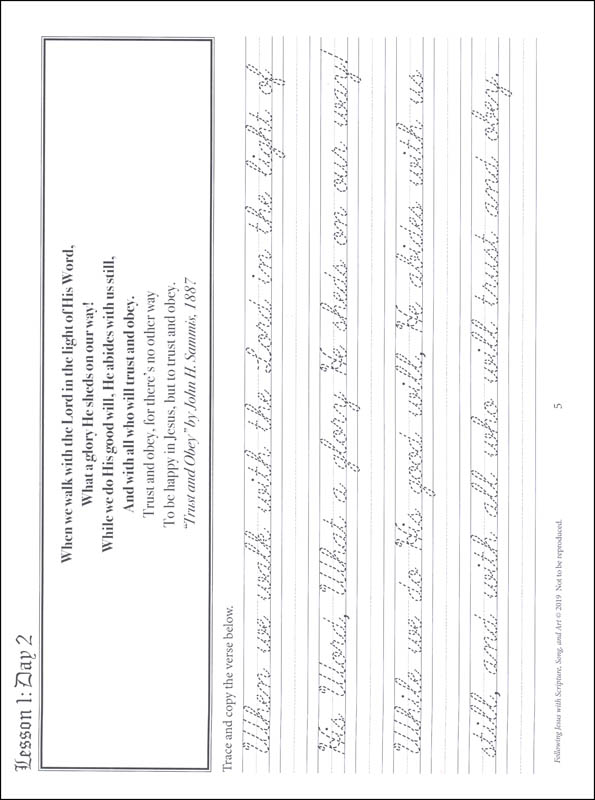 Lesson 1: Day 2
When we walk with the Lord in the light of His Word,
What a glory He sheds on our way!
While we do His good will, He abides with us still,
And with all who will trust and obey.
Trust and obey, for there's no other way
To be happy in Jesus, but to trust and obey.
“Trust and Obey” by John H. Sammis, 1887
Trace and copy the verse below.
When we walk with the Lord in the light of
His Word, What a glory He sheds on our way!
While we do His good will, He abides with us
still, and with all who will trust and obey.
Following Jesus with Scripture, Song, and Art © 2019 Not to be reproduced.
5